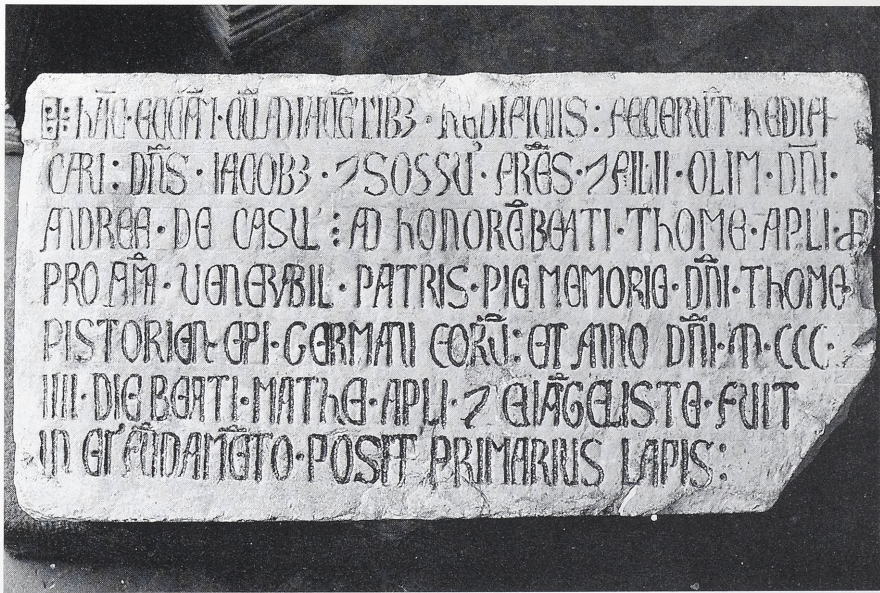 HĀC · ECCĪAM · CŪ ADIACĒTIBꝫ · HEDIFICIIS : FECERŪT HEDIFI
CARI : DN̄S · IACOBꝫ · ⁊ SOSSU' FRĒS · ⁊ FILII · OLIM · DN̄I ·
ANDREE · DE CASUL' : AD HONORĒ BEATI · THOME · APLI · ⁊
PRO AĪA · VENERABIL · PATRIS · PIE MEMORIE · DN̄I · THOME
PISTORIEN EPI · GERMANI EORŪ : ET ANNO DN̄I · M · CCC ·
IIII · DIE BEATI · MATHEI · APLI · ⁊ EUĀGELISTE · FUIT
IN EI' FŪDAMĒTO · POSIT' PRIMARIUS LAPIS :